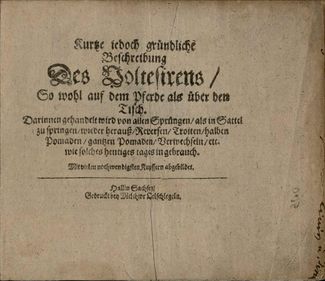 Kurtze iedoch gründliche
Beschreibung
Des Voltesirens /
So wohl auf dem Pferde als über den
Tisch.
Darinnen gehandelt wird von allen Sprüngen / als in Sattel
zu springen / wieder herauß / Reversen / Trotten / halben
Pomaden / gantzen Pomaden / Verwechseln / etc.
wie solches heutiges tages in gebrauch.
Mit vielen nothwendigsten Kupffern abgebildet.
Hall in Sachsen /
Gedruckt bey Melchior Oelschlegeln.